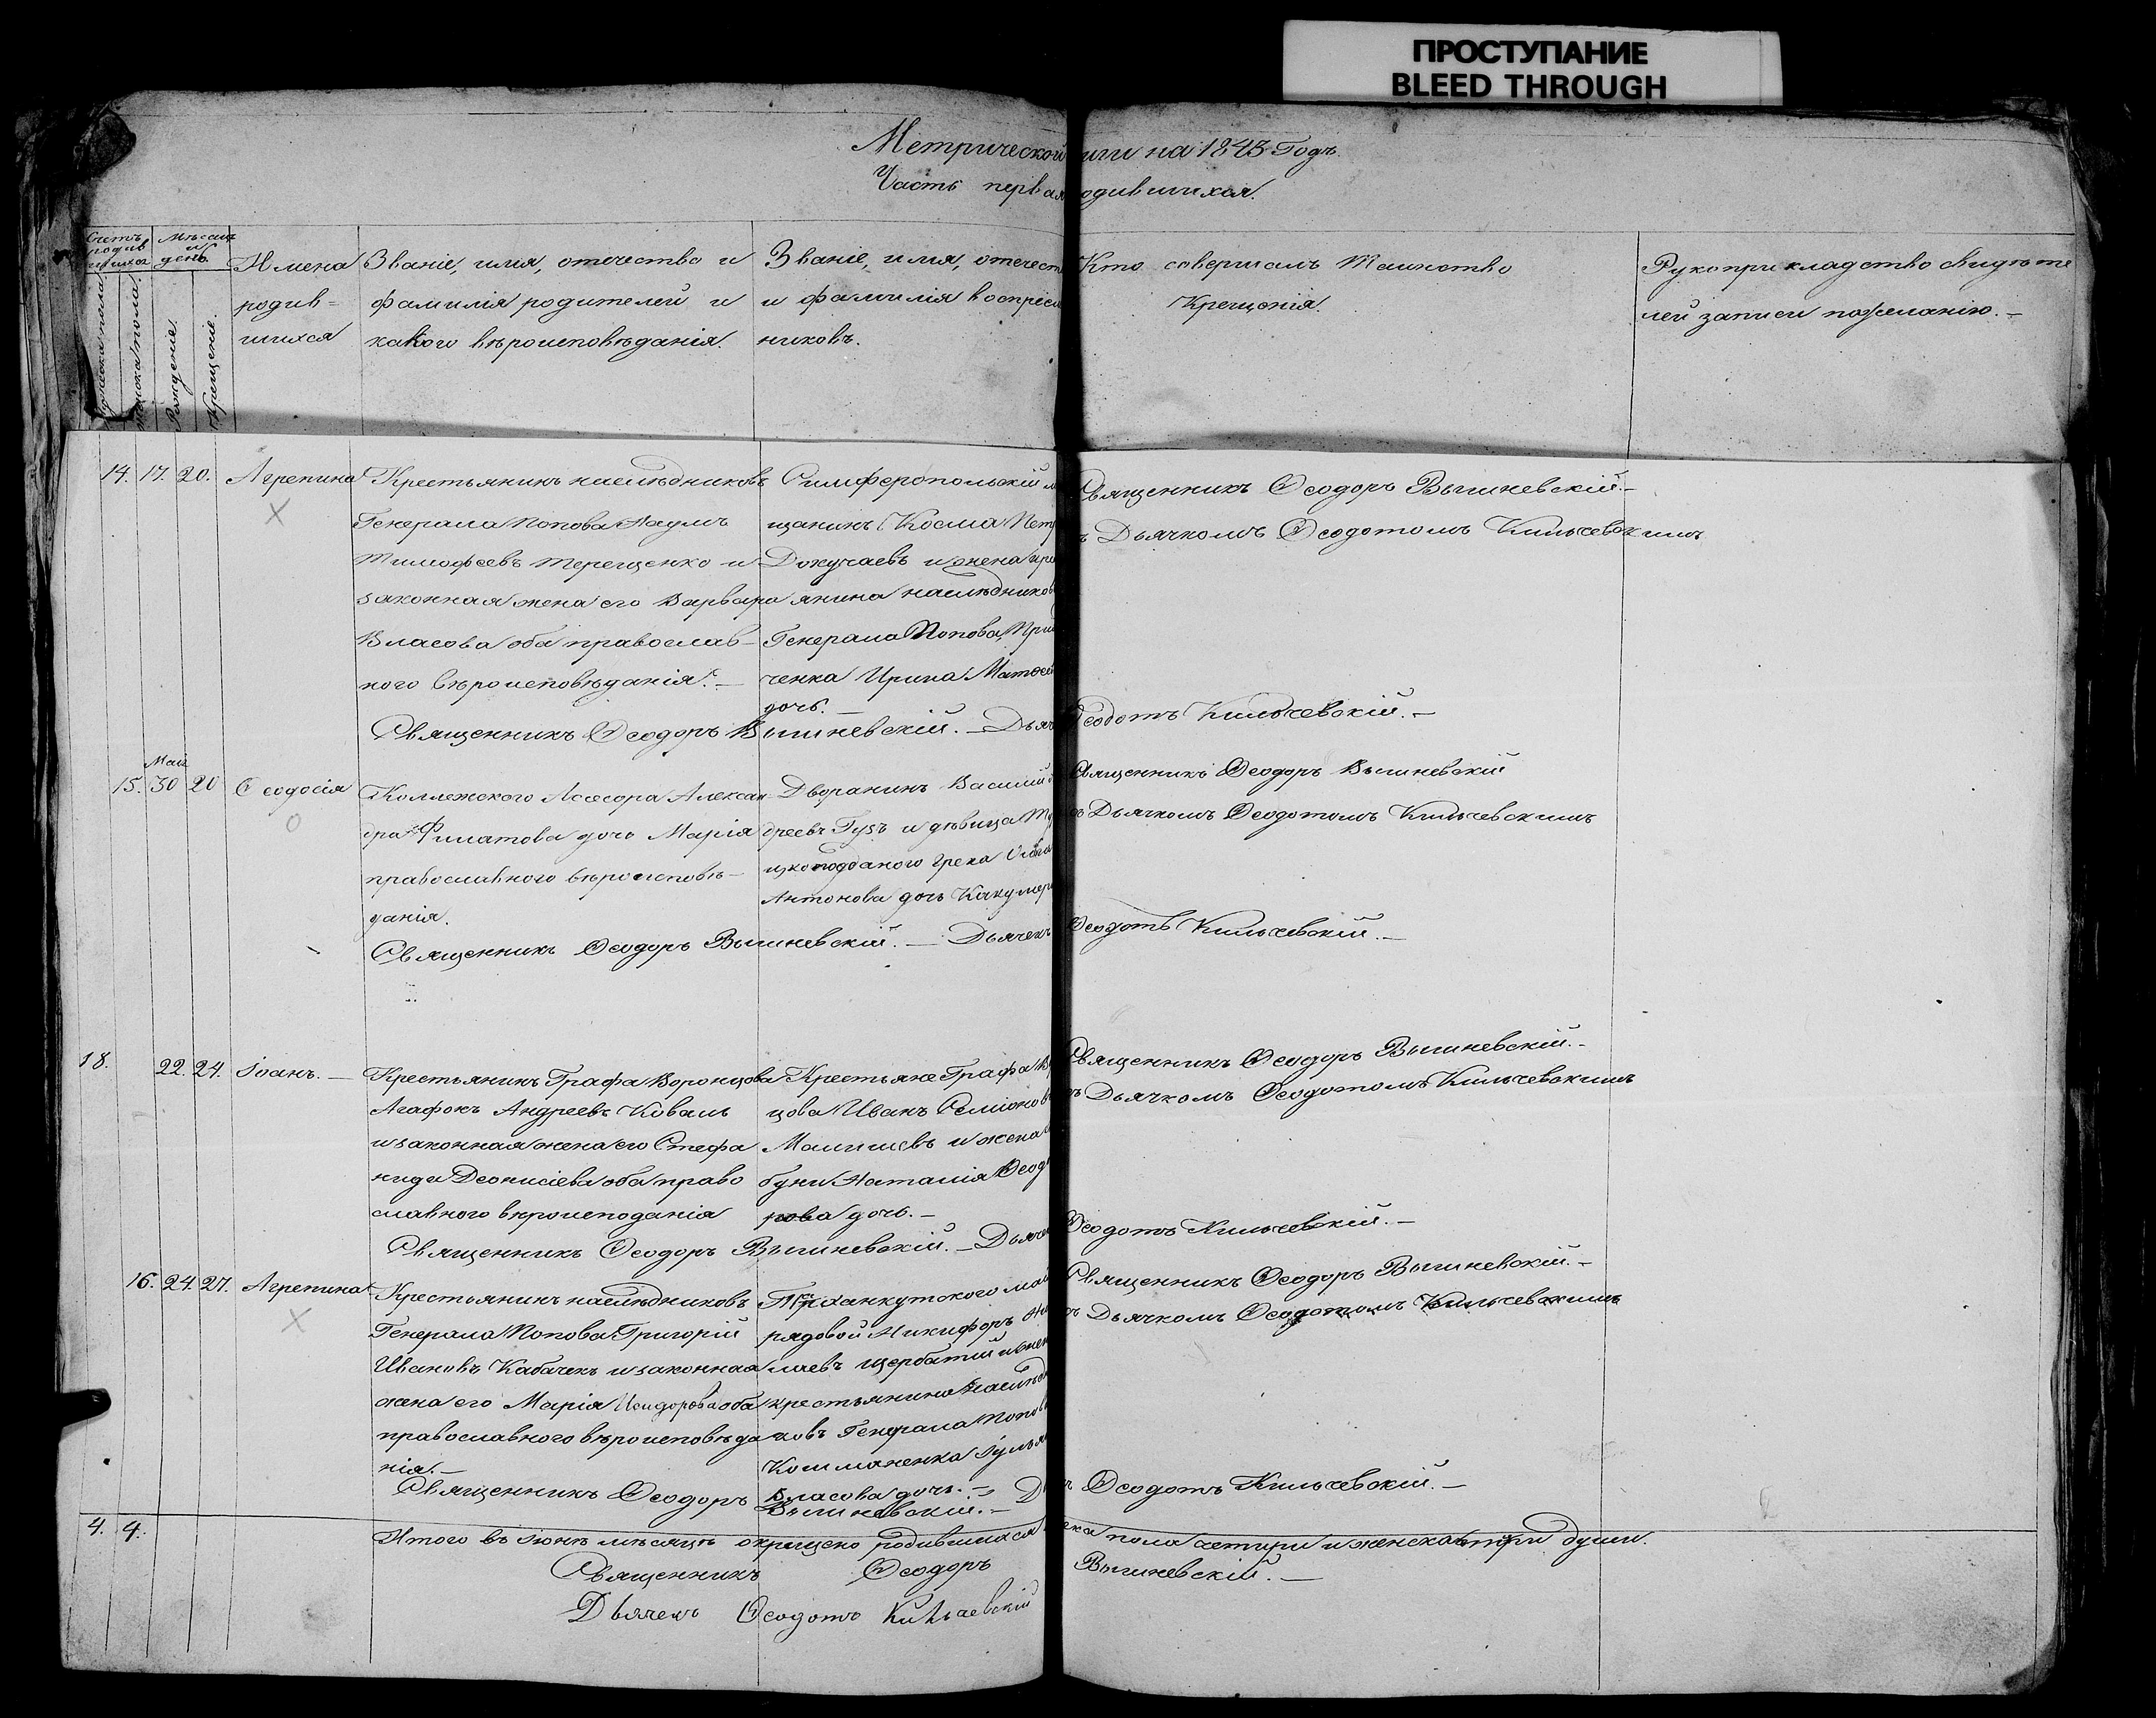 ПРОСТУПАНИЕ
BLEED THROUGH
Метрической ниги на 1843 Годъ.
Часть первая одившихся.
Счетъ родившихся
Мѣсяцъ и день.
мужеска пола
женска пола
Рожденіе.
Крещеніе.
Имена
родив=
шихся
Званіе, имя, отечество и
фамилія родителей и
какого вѣроисповѣданія.
Званіе, имя, отечест
и фамилія воспріем
никовъ.
Кто совершалъ Таинство
Крещенія.
Рукоприкладство свидѣте
лей записи пожеланію. —
14. 17. 20. Агрепина
Крестьянинъ наслѣдниковъ
Генерала Попова Наумъ
Тимофеевъ Терещенко и
законная жена его Варвара
Власова оба православ-
ного вѣроисповѣданія. —
Симферопольскій м
щанинъ Косма Петр
Докучаевъ и жена кре
янина наслѣдников
Генерала Попова, При
ченка Ирина Матѳеи
дочь. —
Священникъ Ѳеодоръ Вышневскій. —
ъ Дьячкомъ Ѳеодотомъ Кильчевскимъ
Священникъ Ѳеодоръ Вышневскій. — Дьяч Ѳеодотъ Кильчевскій. —
Маи
15. 30 20 Ѳеодосія
Коллежского Асесора Алексан
дра Филатова дочь Марія
православного вѣроисповѣ-
данія.
Дворанинъ Василій
дреевъ Гузъ и дѣвица Ту
цкоподданого Грека
Антонова дочь
Священникъ Ѳеодоръ Вышневскій
ъ Дьячкомъ Ѳеодотомъ Кильчевскимъ
Священникъ Ѳеодоръ Вышневскій. — Дьячекъ Ѳеодотъ Кильчевскій. —
18. 22. 24. Іоанъ. —
Крестьянинъ Графа Воронцова
Агафонъ Андреевъ Коваль
и законная жена его Стефа
нида Деонисіева оба право
славного вѣроисподанія
Крестьяне Графа В
цова Иванъ Семіонов
Малишевъ и жена
буни Наталія Ѳеод
рова дочь. —
Священникъ Ѳеодоръ Вышневскій. —
ъ Дьячкомъ Ѳеодотомъ Кильчевскимъ
Священникъ Ѳеодоръ Вышневскій. — Дьяче Ѳеодотъ Кильчевскій. —
16. 24. 27. Агрепина
Крестьянинъ наслѣдниковъ
Генерала Попова Григорій
Ивановъ Кабачекъ и законная
жена его Марія Исидорова оба
православного вѣроисповѣда
нія. —
Тарханкутского мая
рядовой Никифоръ Ни
лаевъ Щербатій и жен
крестьянина наслѣд
ковъ Генерала Попов
Кошманенка Іулья
Власова дочь. —
Священникъ Ѳеодоръ Вышневскій. —
ъ Дьячкомъ Ѳеодотомъ Кильчевскимъ
Священникъ Ѳеодоръ Вышневскій. — Д ъ Ѳеодотъ Кильчевскій. —
4. 4.
Итого въ Іюнѣ мѣсяцѣ окрещено родившихся ска пола четири и женска три души.
Священникъ Ѳеодоръ Вышневскій. —
Дьячекъ Ѳеодотъ Кильчевскій